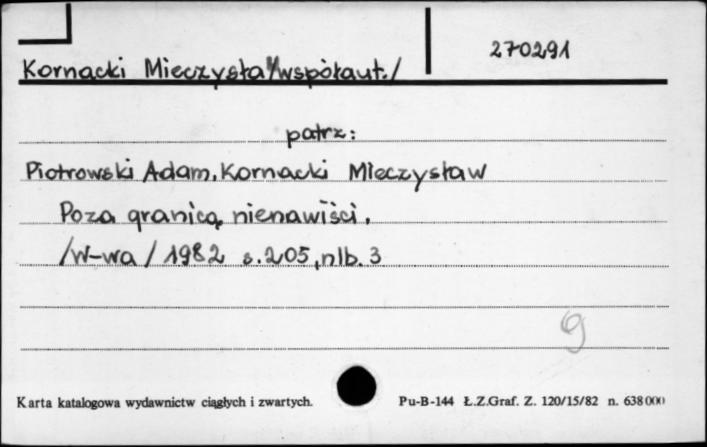 270291
Kornacki Mieczysław /współaut./
patrz:
Piotrowski Adam, Kornacki Mieczysław
Poza granicą nienawiści.
/W-wa/ 1982 s. 205, nlb. 3
g
Karta katalogowa wydawnictw ciągłych i zwartych. Pu-B-144 Ł.Z.Graf. Z. 120/15/82 n. 638000